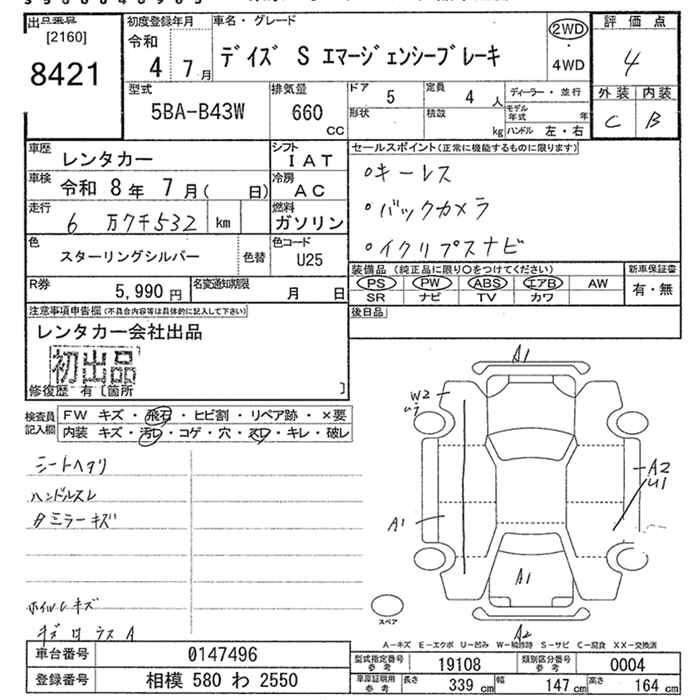 出品番号
[2160]
8421
初度登録年月
令和
4 7月
車名・グレード
デイズ S エマージェンシーブレーキ
2WD
・
4WD
評価点
4
外装 内装
C B
型式
5BA-B43W
排気量
660
CC
ドア 5
定員 4 人
形状
積載 kg
ディーラー・並行
モデル年式 年
ハンドル 左・右
車歴
レンタカー
シフト
IAT
車検
令和 8年 7月( 日)
冷房
AC
走行
6 万7千532 km
燃料
ガソリン
色
スターリングシルバー
色替
色コード
U25
R券
5,990 円
名変通知期限
月 日
セールスポイント(正常に機能するものに限ります)
○キーレス
○バックカメラ
○イクリプスナビ
装備品 (純正品に限り○をつけてください)
PS PW ABS エアB AW
SR ナビ TV カワ
新車保証書
有・無
後日品
注意事項申告欄(不具合内容等は具体的に記入して下さい)
レンタカー会社出品
初出品
修復歴 有〔箇所 〕
検査員
記入欄
FW キズ・飛石・ヒビ割・リペア跡・×要
内装 キズ・汚レ・コゲ・穴・スレ・キレ・破レ
シートヘタリ
ハンドルスレ
タミラーキズ
ホイルCキズ
A1
W2
U1
A2
U1
A1
A1
A2
スペア
A-キズ E-エクボ U-凹み W-補修跡 S-サビ C-腐食 XX-交換済
車台番号
0147496
登録番号
相模 580 わ 2550
型式指定番号
参考
19108
類別区分番号
参考
0004
車庫証明用
参考
長さ 339 cm
幅 147 cm
高さ 164 cm